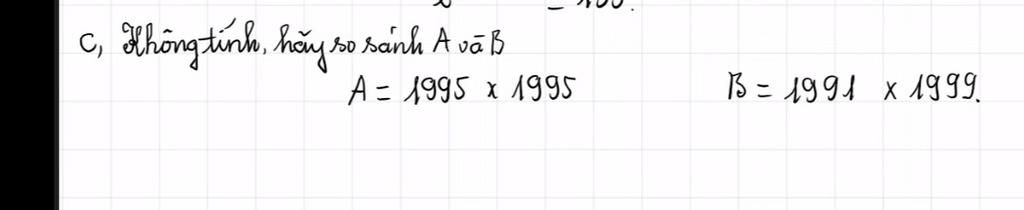 c, Không tính, hãy so sánh A và B
A = 1995 x 1995 B = 1991 x 1999.